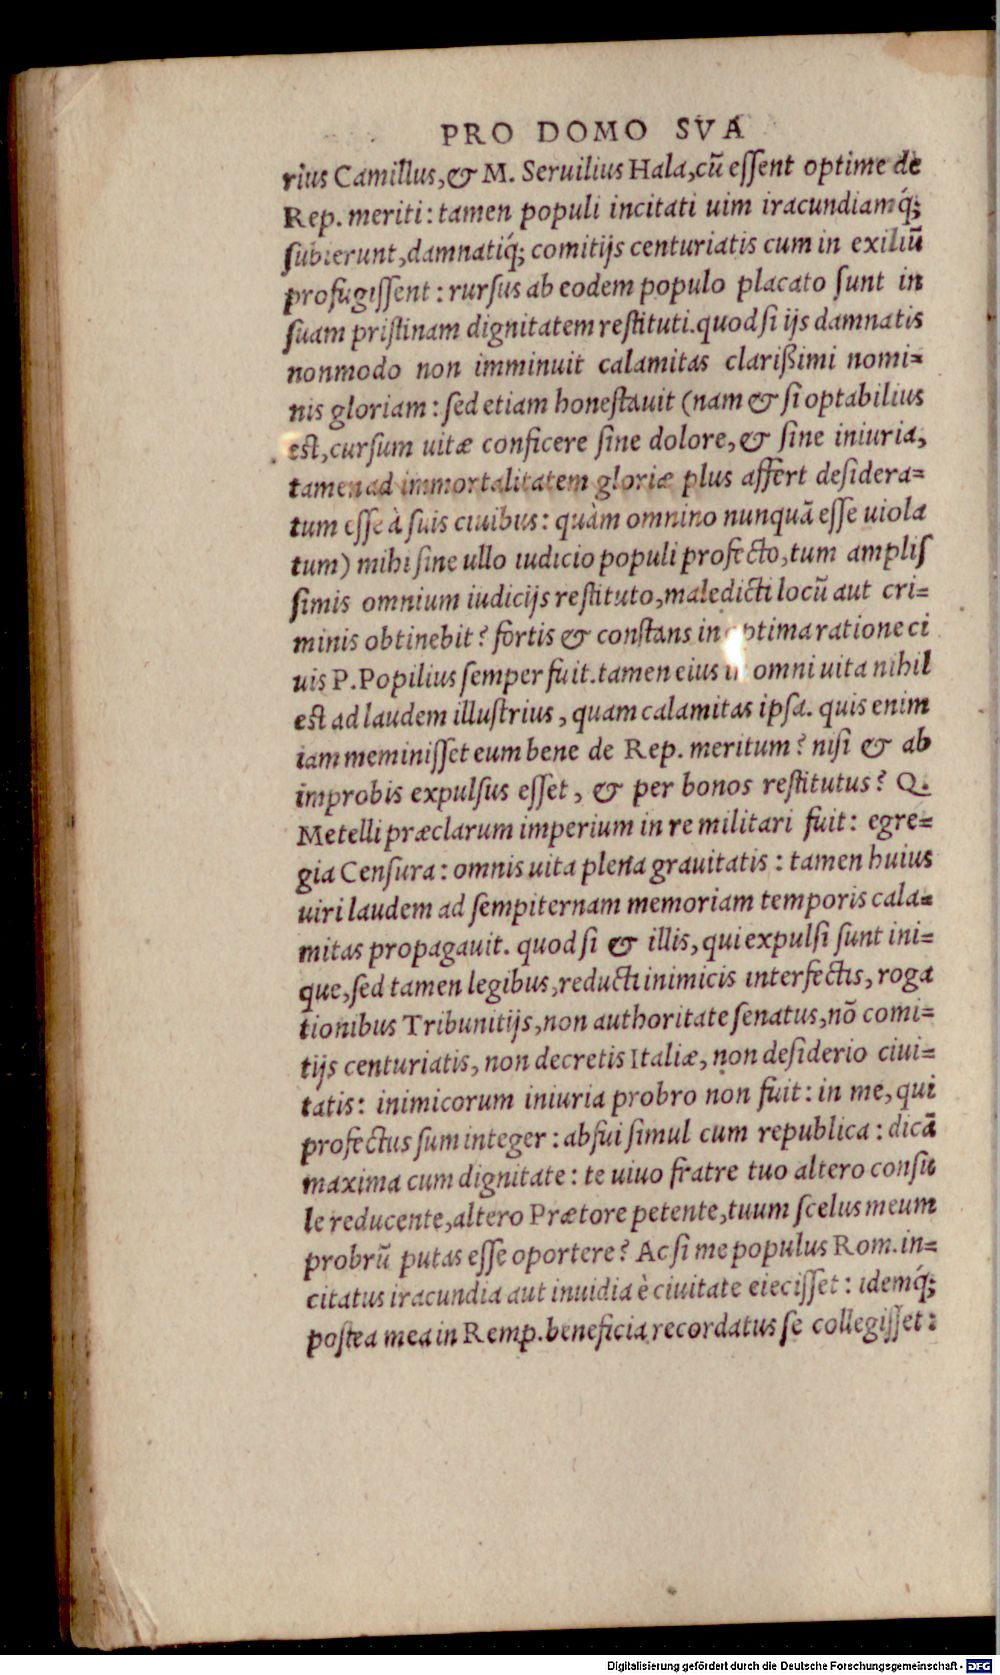 PRO DOMO SVA
rius Camillus,& M. Seruilius Hala,cū eſſent optime de
Rep. meriti: tamen populi incitati uim iracundiamq́;
ſubierunt,damnatiq́; comitijs centuriatis cum in exiliū
profugiſſent: rurſus ab eodem populo placato ſunt in
ſuam priſtinam dignitatem reſtituti.quod ſi ijs damnatis
nonmodo non imminuit calamitas clarißimi nomi=
nis gloriam: ſed etiam honeſtauit (nam & ſi optabilius
est,curſum uitæ conficere ſine dolore,& ſine iniuria,
tamen ad immortalitatem gloriæ plus affert deſidera=
tum eſſe à ſuis ciuibus: quàm omnino nunquā eſſe uiola
tum) mihi ſine ullo iudicio populi profecto,tum ampliſ
ſimis omnium iudicijs reſtituto,maledicti locū aut cri=
minis obtinebit? fortis & conſtans in optima ratione ci
uis P.Popilius ſemper fuit.tamen eius in omni uita nihil
est ad laudem illuſtrius, quam calamitas ipſa. quis enim
iam meminiſſet eum bene de Rep. meritum? niſi & ab
improbis expulſus eſſet, & per bonos reſtitutus? Q.
Metelli præclarum imperium in re militari fuit: egre=
gia Cenſura: omnis uita plena grauitatis: tamen huius
uiri laudem ad ſempiternam memoriam temporis cala=
mitas propagauit. quod ſi & illis, qui expulſi ſunt ini=
que,ſed tamen legibus,reducti inimicis interfectis, roga
tionibus Tribunitijs,non authoritate ſenatus,nō comi=
tijs centuriatis, non decretis Italiæ, non deſiderio ciui=
tatis: inimicorum iniuria probro non fuit: in me, qui
profectus ſum integer: abfui ſimul cum republica: dicā
maxima cum dignitate: te uiuo fratre tuo altero conſu
le reducente,altero Prætore petente,tuum ſcelus meum
probrū putas eſſe oportere? Ac ſi me populus Rom.in=
citatus iracundia aut inuidia è ciuitate eieciſſet: idemq́;
poſtea mea in Remp.beneficia recordatus ſe collegiſſet:
Digitalisierung gefördert durch die Deutsche Forschungsgemeinschaft - DFG